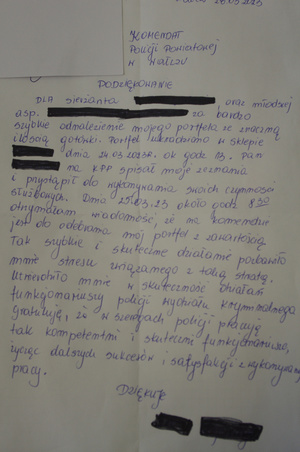 28.03.2023
KOMENDAT
Policji Powiatowej
w
PODZIĘKOWANIE
DLA sierżanta oraz młodszej
asp. za bardzo
szybkie odnalezienie mojego portfela ze znaczną
ilością gotówki. Portfel ukradziono w sklepie
dnia 24.03.2023r. ok godz 13. Pan
na KPP spisał moje zeznania
i przystąpił do wykonywania swoich czynności
służbowych. Dnia 25.03.23 około godz 8 30
otrzymałam wiadomość, że na komendzie
jest do odebrania mój portfel z zawartością
Tak szybkie i skuteczne działanie pozbawiło
mnie stresu związanego z tą stratą.
mnie w skuteczność działań
funkcjonariuszy policji wydziału kryminalnego
Gratuluję, że w szeregach policji pracują
tak kompetentni i skuteczni funkcjonariusze,
życząc dalszych sukcesów i satysfakcji z wykonywanej
pracy.
Dziękuję